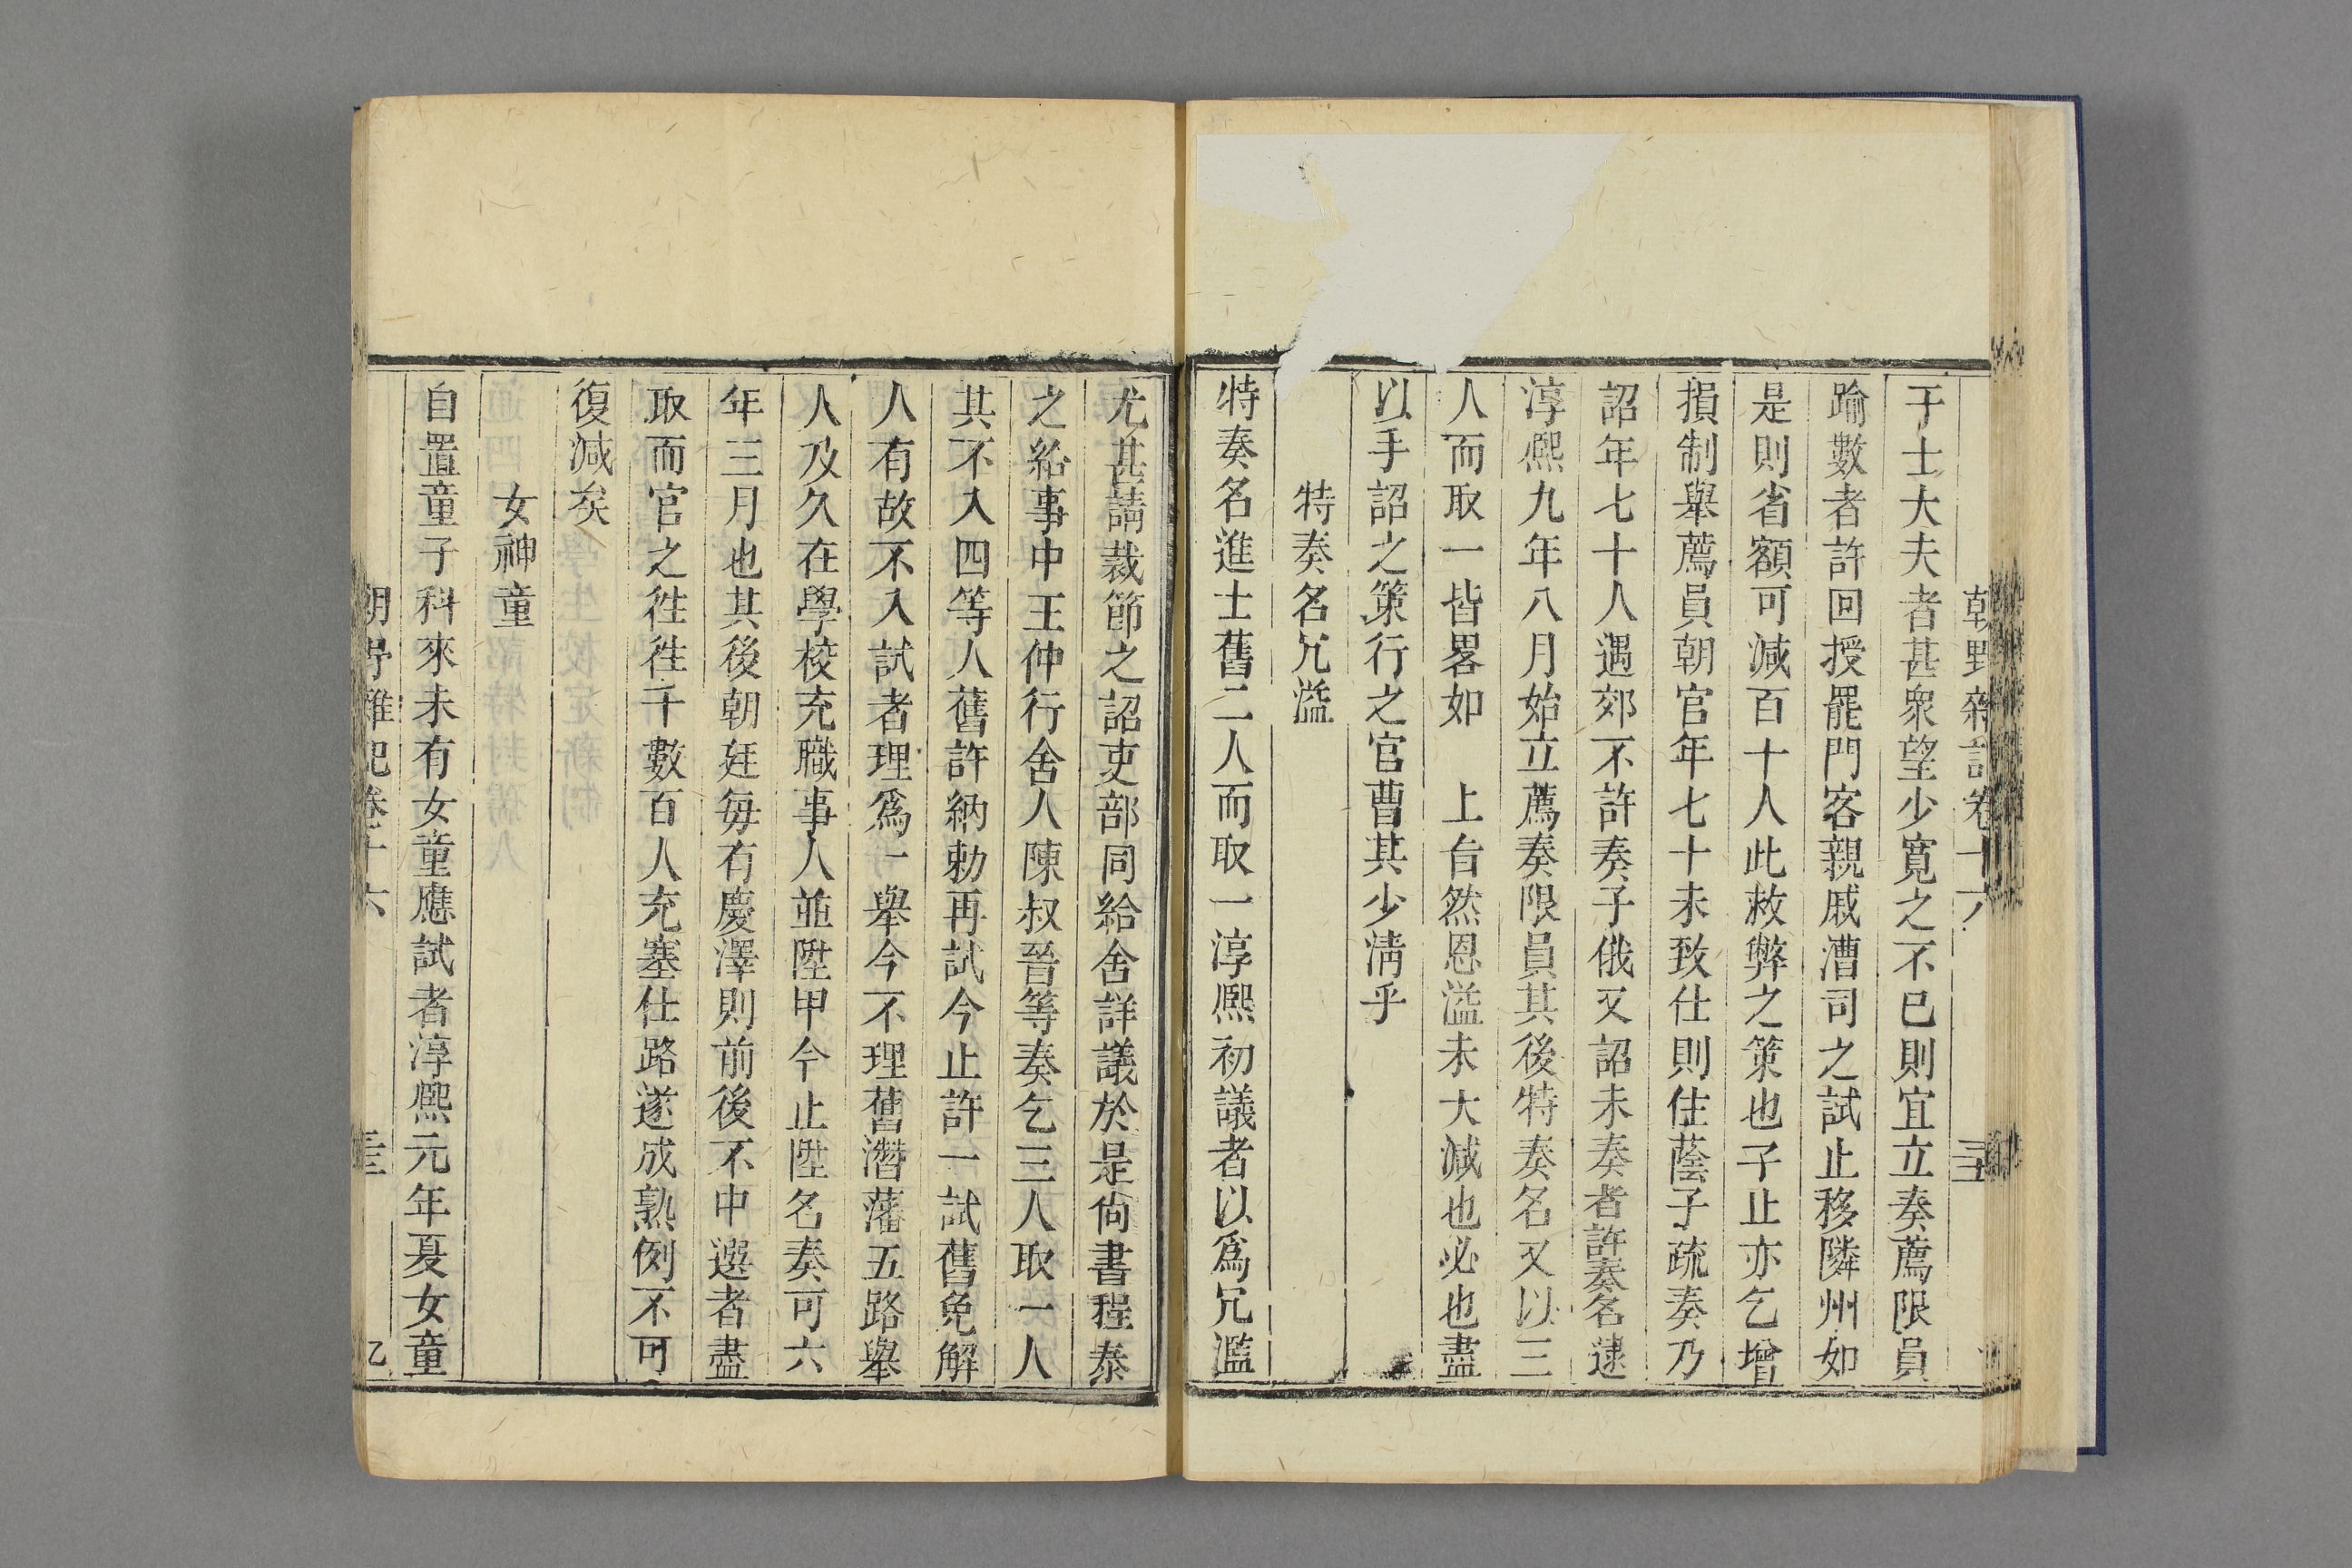 朝野雜記卷十六
于士大夫者甚衆望少寛之不已則宜立奏薦限員
踰數者許回授罷門客親戚漕司之試止移隣州如
是則省額可減百十人此救弊之策也子止亦乞增
損制舉薦員朝官年七十未致仕則住蔭子疏奏乃
詔年七十人遇郊不許奏子俄又詔未奏者許奏名逮
淳熙九年八月始立薦奏限員其後特奏名又以三
人而取一皆畧如　上旨然恩溢未大減也必也盡
以手詔之策行之官曹其少淸乎
特奏名冗溢
特奏名進士舊二人而取一淳熙初議者以爲冗濫
尤甚請裁節之詔吏部同給舍詳議於是尙書程泰
之給事中王仲行舍人陳叔晉等奏乞三人取一人
其不入四等人舊許納勅再試今止許一試舊免解
人有故不入試者理爲一舉今不理舊潛藩五路舉
人及久在學校充職事人並陞甲今止陞名奏可六
年三月也其後朝廷每有慶澤則前後不中選者盡
取而官之徃徃千數百人充塞仕路遂成熟例不可
復減矣
女神童
自置童子科來未有女童應試者淳熙元年夏女童
朝野雜記卷十六
乙